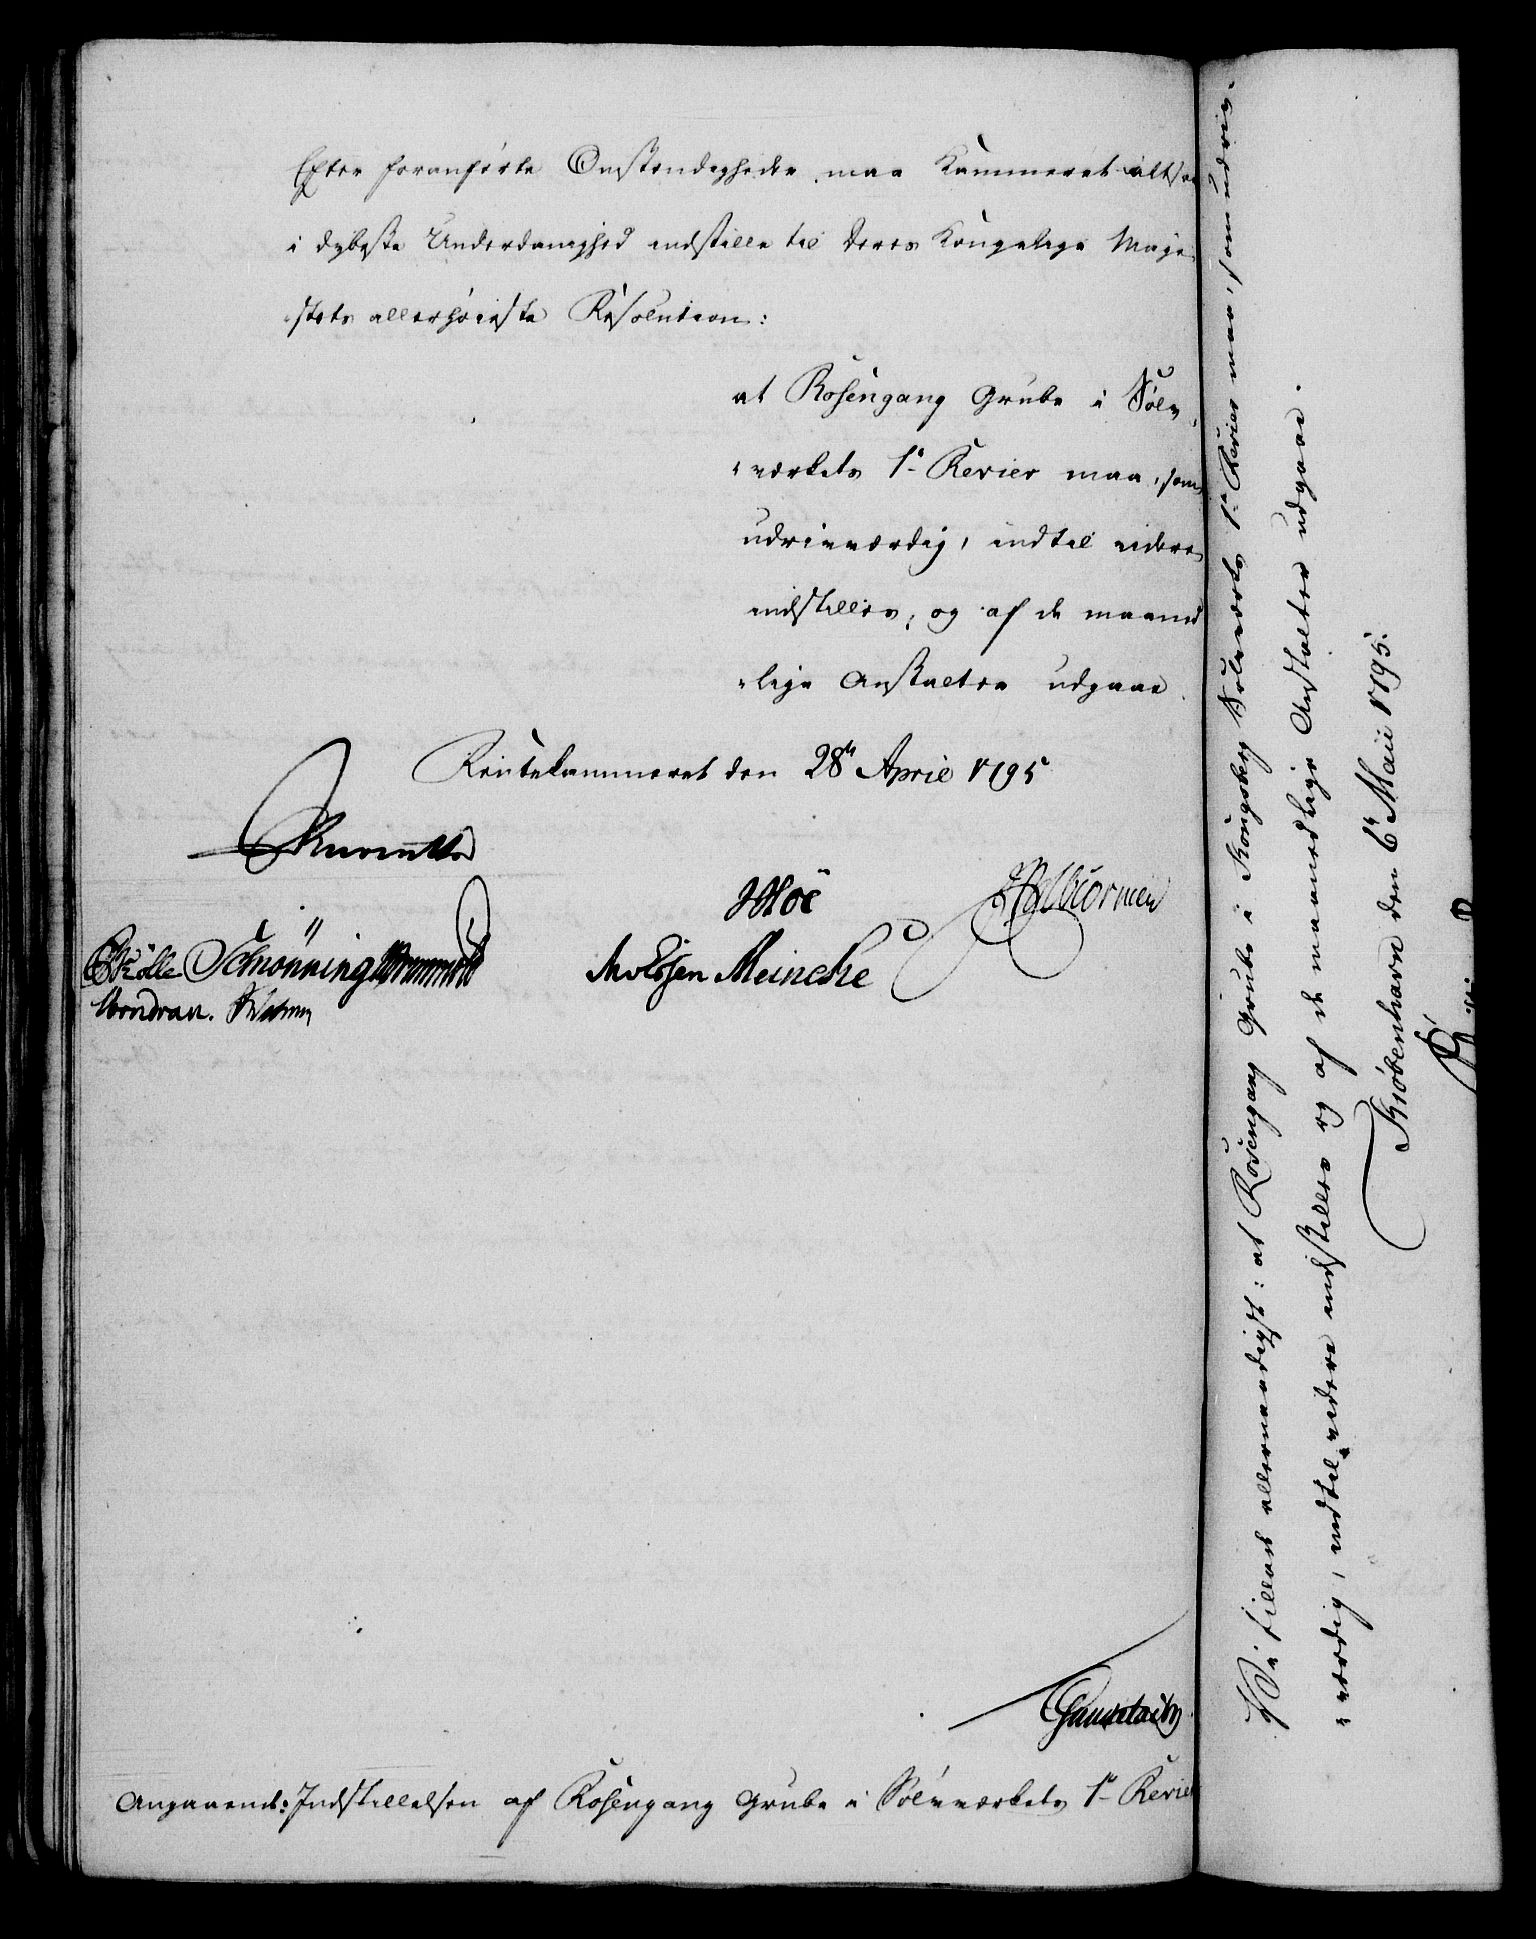 Efter foranførte Omstændigheder maa Kammeret altsaa
i dybeste Underdanighed indstille til Deres Kongelige Maje-
stets allerhøieste Resolution:
at Rosengang Grube i Sølv-
værkets 1te Revier maa, som
udrivværdig, indtil videre
indstilles, og af de maaned-
lige Anstalter udgaae.
Rentekammeret den 28de April 1795
Moe
Schönning
Molssen Meincke
Angaaende: Indstillelsen af Rosengang Grube i Sølvværkets 1te Revier
Vi tillade allernaadigst: at Rosengang Grube i Kongsberg Sølvværks 1te Revier maa, som udriv-
værdig, indtil videre indstilles og af de maanedlige Anstalter udgaae.
Kiøbenhavn den 6te Maii 1795.